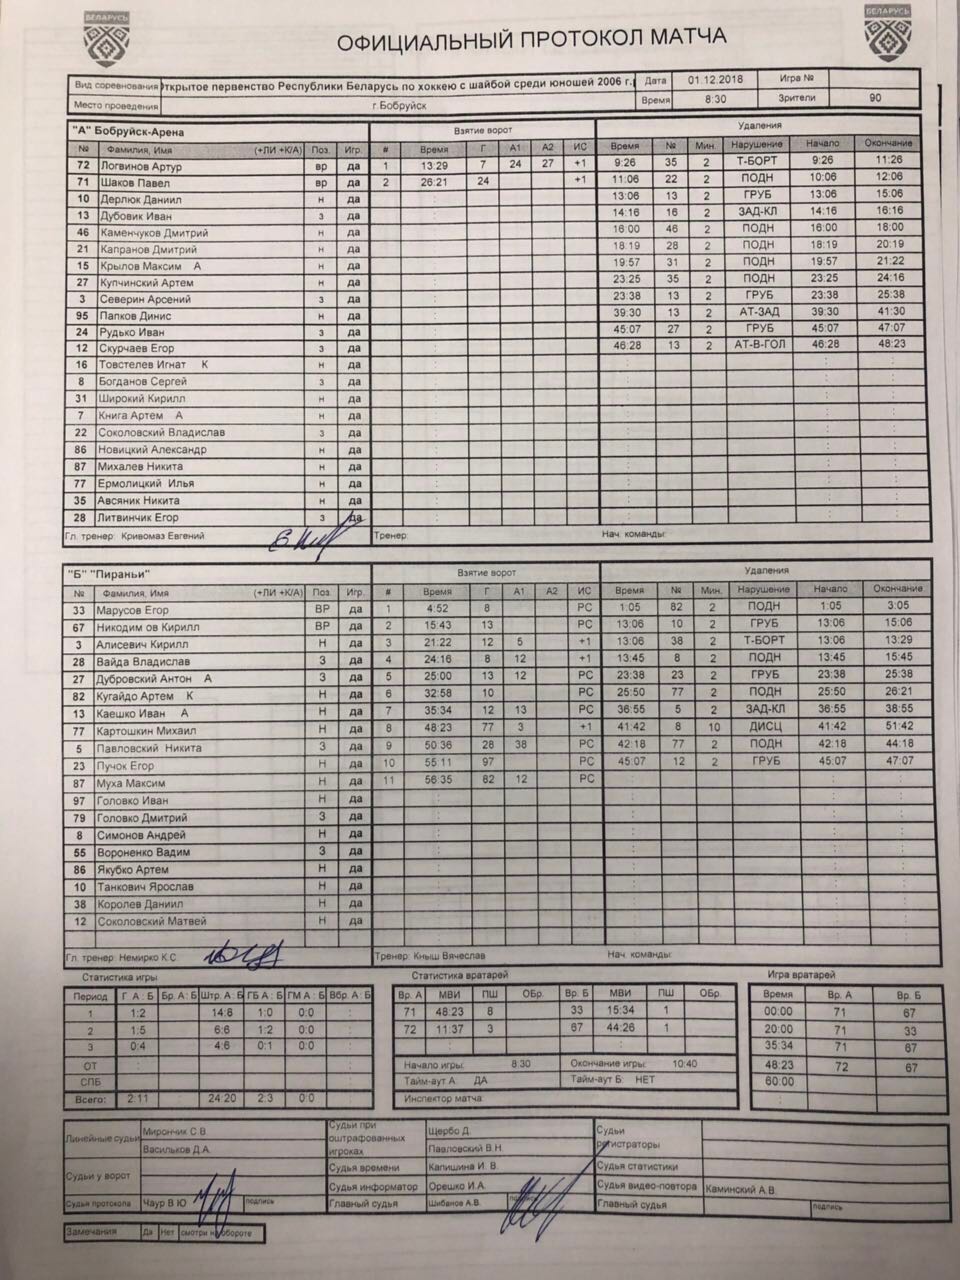 БЕЛАРУСЬ
БЕЛАРУСЬ
ОФИЦИАЛЬНЫЙ ПРОТОКОЛ МАТЧА
Вид соревнования ткрытое первенство Республики Беларусь по хоккею с шайбой среди юношей 2006 г. Дата 01.12.2018 Игра №
Место проведения г.Бобруйск Время 8:30 Зрители 90
"А" Бобруйск-Арена Взятие ворот Удаления
№ Фамилия, Имя (+ЛИ +К/А) Поз. Игр. # Время Г А1 А2 ИС Время № Мин. Нарушение Начало Окончание
72 Логвинов Артур вр да 1 13:29 7 24 27 +1 9:26 35 2 Т-БОРТ 9:26 11:26
71 Шаков Павел вр да 2 26:21 24 +1 11:06 22 2 ПОДН 10:06 12:06
10 Дерлюк Даниил н да 13:06 13 2 ГРУБ 13:06 15:06
13 Дубовик Иван з да 14:16 16 2 ЗАД-КЛ 14:16 16:16
46 Каменчуков Дмитрий н да 16:00 46 2 ПОДН 16:00 18:00
21 Капранов Дмитрий н да 18:19 28 2 ПОДН 18:19 20:19
15 Крылов Максим А н да 19:57 31 2 ПОДН 19:57 21:22
27 Купчинский Артем н да 23:25 35 2 ПОДН 23:25 24:16
3 Северин Арсений з да 23:38 13 2 ГРУБ 23:38 25:38
95 Папков Динис н да 39:30 13 2 АТ-ЗАД 39:30 41:30
24 Рудько Иван з да 45:07 27 2 ГРУБ 45:07 47:07
12 Скурчаев Егор з да 46:28 13 2 АТ-В-ГОЛ 46:28 48:23
16 Товстелев Игнат К н да
8 Богданов Сергей з да
31 Широкий Кирилл н да
7 Книга Артем А н да
22 Соколовский Владислав з да
86 Новицкий Александр н да
87 Михалев Никита н да
77 Ермолицкий Илья н да
35 Авсяник Никита н да
28 Литвинчик Егор з да
Гл. тренер: Кривомаз Евгений Тренер: Нач. команды:
"Б" "Пираньи" Взятие ворот Удаления
№ Фамилия, Имя (+ЛИ +К/А) Поз. Игр. # Время Г А1 А2 ИС Время № Мин. Нарушение Начало Окончание
33 Марусов Егор ВР да 1 4:52 8 РС 1:05 82 2 ПОДН 1:05 3:05
67 Никодим ов Кирилл ВР да 2 15:43 13 РС 13:06 10 2 ГРУБ 13:06 15:06
3 Алисевич Кирилл Н да 3 21:22 12 5 +1 13:06 38 2 Т-БОРТ 13:06 13:29
28 Вайда Владислав З да 4 24:16 8 12 +1 13:45 8 2 ПОДН 13:45 15:45
27 Дубровский Антон А З да 5 25:00 13 12 РС 23:38 23 2 ГРУБ 23:38 25:38
82 Кугайдо Артем К Н да 6 32:58 10 РС 25:50 77 2 ПОДН 25:50 26:21
13 Каешко Иван А Н да 7 35:34 12 13 РС 36:55 5 2 ЗАД-КЛ 36:55 38:55
77 Картошкин Михаил Н да 8 48:23 77 3 +1 41:42 8 10 ДИСЦ 41:42 51:42
5 Павловский Никита З да 9 50:36 28 38 РС 42:18 77 2 ПОДН 42:18 44:18
23 Пучок Егор Н да 10 55:11 97 РС 45:07 12 2 ГРУБ 45:07 47:07
87 Муха Максим Н да 11 56:35 82 12 РС
97 Головко Иван Н да
79 Головко Дмитрий З да
8 Симонов Андрей Н да
55 Вороненко Вадим З да
86 Якубко Артем Н да
10 Танкович Ярослав Н да
38 Королев Даниил Н да
12 Соколовский Матвей Н да
Гл. тренер: Немирко К.С. Тренер: Кныш Вячеслав Нач. команды:
Статистика игры Статистика вратарей Игра вратарей
Период Г А : Б Бр. А : Б Штр. А : Б ГБ А : Б ГМ А : Б Вбр. А : Б Вр. А МВИ ПШ ОБр. Вр. Б МВИ ПШ ОБр. Время Вр. А Вр. Б
1 1:2 14:8 1:0 0:0 71 48:23 8 33 15:34 1 00:00 71 67
2 1:5 6:6 1:2 0:0 72 11:37 3 67 44:26 1 20:00 71 33
3 0:4 4:6 0:1 0:0 35:34 71 67
ОТ Начало игры: 8:30 Окончание игры: 10:40 48:23 72 67
СПБ Тайм-аут А: ДА Тайм-аут Б: НЕТ 60:00
Всего: 2:11 24:20 2:3 0:0 Инспектор матча:
Линейные судьи Мирончик С.В. Судьи при оштрафованных игроках Щербо Д. Судьи регистраторы
Васильков Д.А. Павловский В.Н.
Судьи у ворот Судья времени Капишина И. В. Судья статистики
Судья информатор Орешко И.А. Судья видео-повтора Каминский А.В.
Судья протокола Чаур В.Ю. подпись Главный судья Шибанов А.В. Главный судья подпись
Замечания Да Нет смотри на обороте